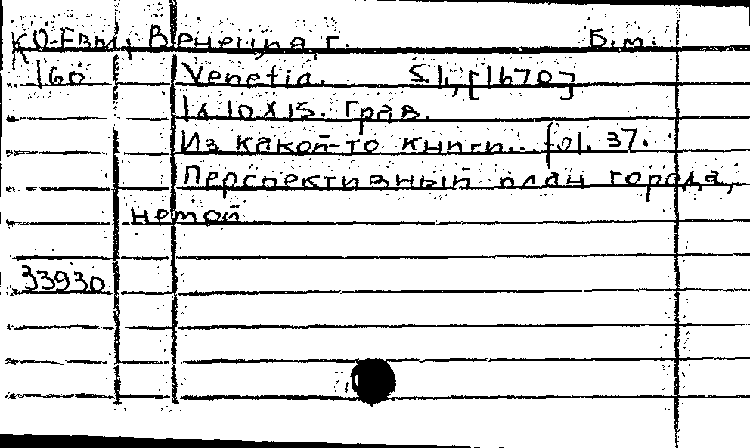 КО-Евы, Венеция, г. Б.м.
160 Venetia. S.l., [1670]
1л. 10 х 15. Грав.
Из какой-то книги... fol. 37.
Перспективный план города,
немой
33930